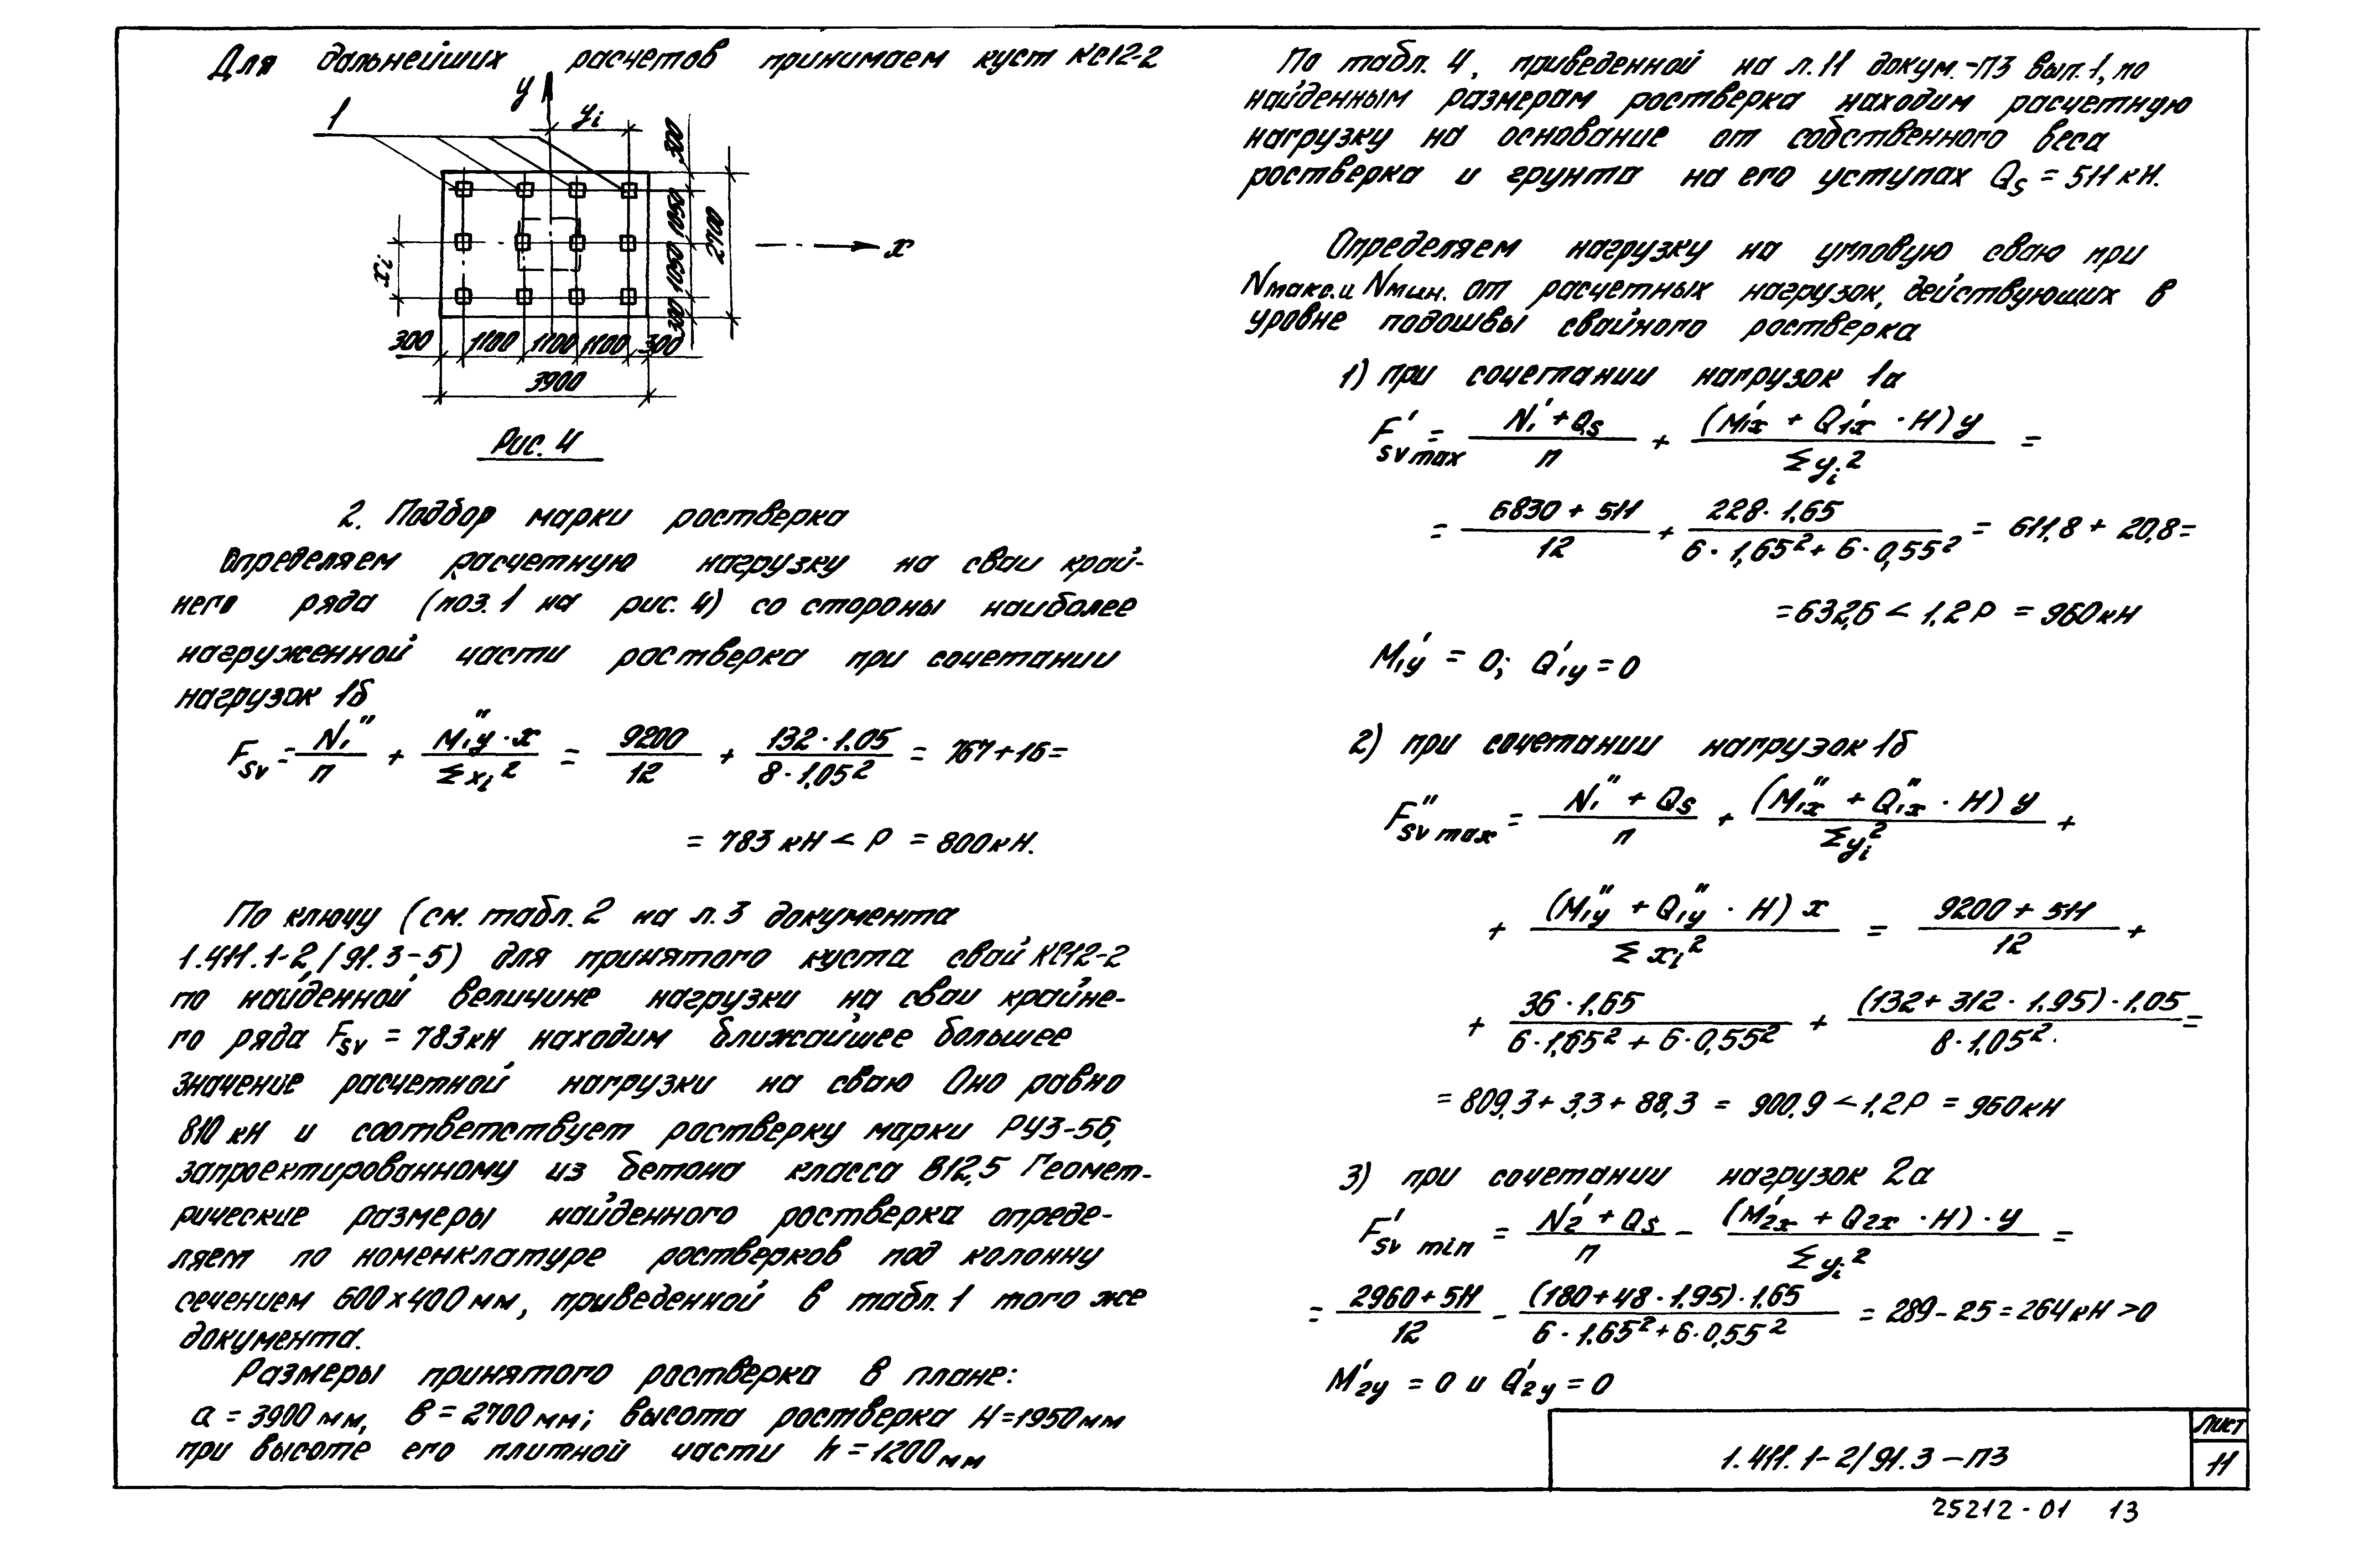 Для дальнейших расчетов принимаем куст КС12-2
y
yi
1
300
1050
1050
300
2700
x
xi
300 1100 1100 1100 300
3900
Рис. 4
2. Подбор марки ростверка
Определяем расчетную нагрузку на сваи край-
него ряда (поз. 1 на рис. 4) со стороны наиболее
нагруженной части ростверка при сочетании
нагрузок 1б
Fsv = N₁″ / n + M₁y″ · x / Σ xi² = 9200 / 12 + 132 · 1,05 / 8 · 1,05² = 767 + 16 =
= 783 кН < P = 800 кН.
По ключу (см. табл. 2 на л. 3 документа
1.411.1-2/91.3-5) для принятого куста свай КС12-2
по найденной величине нагрузки на сваи крайне-
го ряда Fsv = 783 кН находим ближайшее большее
значение расчетной нагрузки на сваю Оно равно
810 кН и соответствует ростверку марки РУ3-56,
запроектированному из бетона класса В12,5 Геомет-
рические размеры найденного ростверка опреде-
ляем по номенклатуре ростверков под колонну
сечением 600×400 мм, приведенной в табл. 1 того же
документа.
Размеры принятого ростверка в плане:
a = 3900 мм, в = 2700 мм; высота ростверка H = 1950 мм
при высоте его плитной части h = 1200 мм
По табл. 4, приведенной на л. 11 докум.-ПЗ вып. 1, по
найденным размерам ростверка находим расчетную
нагрузку на основание от собственного веса
ростверка и грунта на его уступах Qs = 511 кН.
Определяем нагрузку на угловую сваю при
Nмакс. и Nмин. от расчетных нагрузок, действующих в
уровне подошвы свайного ростверка
1) при сочетании нагрузок 1а
F′sv max = N₁′ + Qs / n + (M₁x′ + Q₁x′ · H) y / Σ yi² =
= 6830 + 511 / 12 + 228 · 1,65 / 6 · 1,65² + 6 · 0,55² = 611,8 + 20,8 =
= 632,6 < 1,2 P = 960 кН
M₁y′ = 0; Q′₁y = 0
2) при сочетании нагрузок 1б
F″sv max = N₁″ + Qs / n + (M₁x″ + Q₁x″ · H) y / Σ yi² +
+ (M₁y″ + Q₁y″ · H) x / Σ xi² = 9200 + 511 / 12 +
+ 36 · 1,65 / 6 · 1,65² + 6 · 0,55² + (132 + 312 · 1,95) · 1,05 / 8 · 1,05² =
= 809,3 + 3,3 + 88,3 = 900,9 < 1,2 P = 960 кН
3) при сочетании нагрузок 2а
F′sv min = N₂′ + Qs / n − (M₂x′ + Q₂x · H) · y / Σ yi² =
= 2960 + 511 / 12 − (180 + 48 · 1,95) · 1,65 / 6 · 1,65² + 6 · 0,55² = 289 − 25 = 264 кН > 0
M′₂y = 0 и Q′₂y = 0
1.411.1-2/91.3-ПЗ
Лист
11
25212-01 13